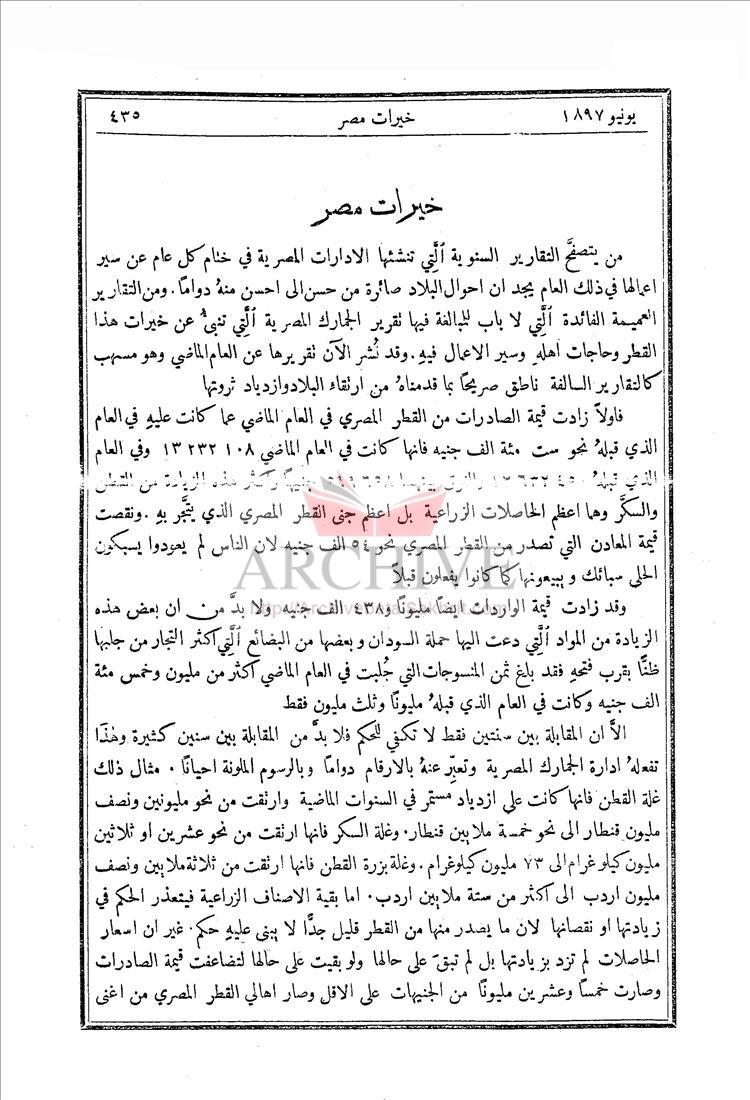 يونيو ١٨٩٧
خيرات مصر
٤٣٥
خيرات مصر
من يتصفَّح التقارير السنوية ٱلَّتِي تنشئها الادارات المصرية في ختام كل عام عن سير
اعمالها في ذلك العام يجد ان احوال البلاد صائرة من حسن الى احسن منهُ دوامًا. ومن التقارير
العميمة الفائدة ٱلَّتِي لا باب للمبالغة فيها تقرير الجمارك المصرية ٱلَّتِي تنبئُ عن خيرات هذا
القطر وحاجات اهلهِ وسير الاعمال فيهِ. وقد نُشر الآن تقريرها عن العام الماضي وهو مسهب
كالتقارير السالفة ناطق صريحًا بما قدمناهُ من ارتقاء البلاد وازدياد ثروتها
فاولاً زادت قيمة الصادرات من القطر المصري في العام الماضي عما كانت عليهِ في العام
الذي قبلهُ نحو ست مئة الف جنيه فانها كانت في العام الماضي ١٠٨ ٢٣٢ ١٣ وفي العام
الذي قبلهُ ٤٥٠ ٦٣٢ ١٢ والفرق بينهما ٥٩٩٦٥٨ جنيهًا واكثر هذه الزيادة من القطن
والسكَّر وهما اعظم الحاصلات الزراعية بل اعظم جنى القطر المصري الذي يتَّجر بهِ. ونقصت
قيمة المعادن التي تصدر من القطر المصري نحو ٥٤ الف جنيه لان الناس لم يعودوا يسبكون
الحلى سبائك و يبيعونها كما كانوا يفعلون قبلاً
ARCHIVE
وقد زادت قيمة الواردات ايضًا مليونًا و٤٣٨ الف جنيه ولا بدَّ من ان بعض هذه
الزيادة من المواد ٱلَّتِي دعت اليها حملة السودان وبعضها من البضائع ٱلَّتِي اكثر التجار من جلبها
ظنًّا بقرب فتحهِ فقد بلغ ثمن المنسوجات التي جُلبت في العام الماضي اكثر من مليون وخمس مئة
الف جنيه وكانت في العام الذي قبلهُ مليونًا وثلث مليون فقط
الاَّ ان المقابلة بين سنتين فقط لا تكفي للحكم فلا بدَّ من المقابلة بين سنين كثيرة وهٰذَا
تفعلهُ ادارة الجمارك المصرية وتعبّر عنهُ بالارقام دوامًا وبالرسوم الملونة احيانًا. مثال ذلك
غلة القطن فانها كانت على ازدياد مستمر في السنوات الماضية وارتقت من نحو مليونين ونصف
مليون قنطار الى نحو خمسة ملايين قنطار. وغلة السكر فانها ارتقت من نحو عشرين او ثلاثين
مليون كيلوغرام الى ٧٣ مليون كيلوغرام. وغلة بزرة القطن فانها ارتقت من ثلاثة ملايين ونصف
مليون اردب الى اكثر من ستة ملايين اردب. اما بقية الاصناف الزراعية فيتعذر الحكم في
زيادتها او نقصانها لان ما يصدر منها من القطر قليل جدًّا لا يبنى عليهِ حكم. غير ان اسعار
الحاصلات لم تزد بزيادتها بل لم تبقَ على حالها ولو بقيت على حالها لتضاعفت قيمة الصادرات
وصارت خمسًا وعشرين مليونًا من الجنيهات على الاقل وصار اهالي القطر المصري من اغنى